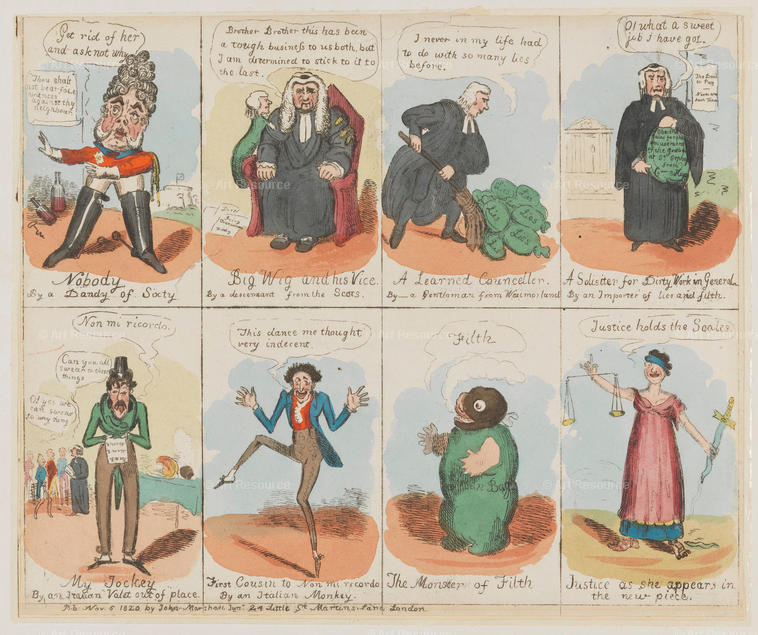 Get rid of her
and ask not why
Thou shalt
not bear false
witness
against thy
neighbour
Nobody
By a Dandy of Sixty
Brother Brother this has been
a rough business to us both, but
I am determined to stick to it to
the last.
Big Wig and his Vice.
By a descendant from the Scots.
I never in my life had
to do with so many lies
before.
Lies
Lies
Lies
A Learned Counceller.
By a Gentleman from Westmorland
O! what a sweet
job I have got.
A Solisitter for Dirty Work in General.
By an Importer of lies and filth.
Non mi ricordo.
Can you all
swear to these
things
O! yes we
can swear
to any thing
My Jockey
By an Italian Valet out of place.
This dance me thought
very indecent.
First Cousin to Non mi ricordo
By an Italian Monkey.
Filth
Green Bag
The Monster of Filth
Justice holds the Scales
Justice as she appears in
the new piece.
Pub. Nov. 6 1820 by John Marshall Junr. 24 Little St. Martins Lane London.
© Art Resource